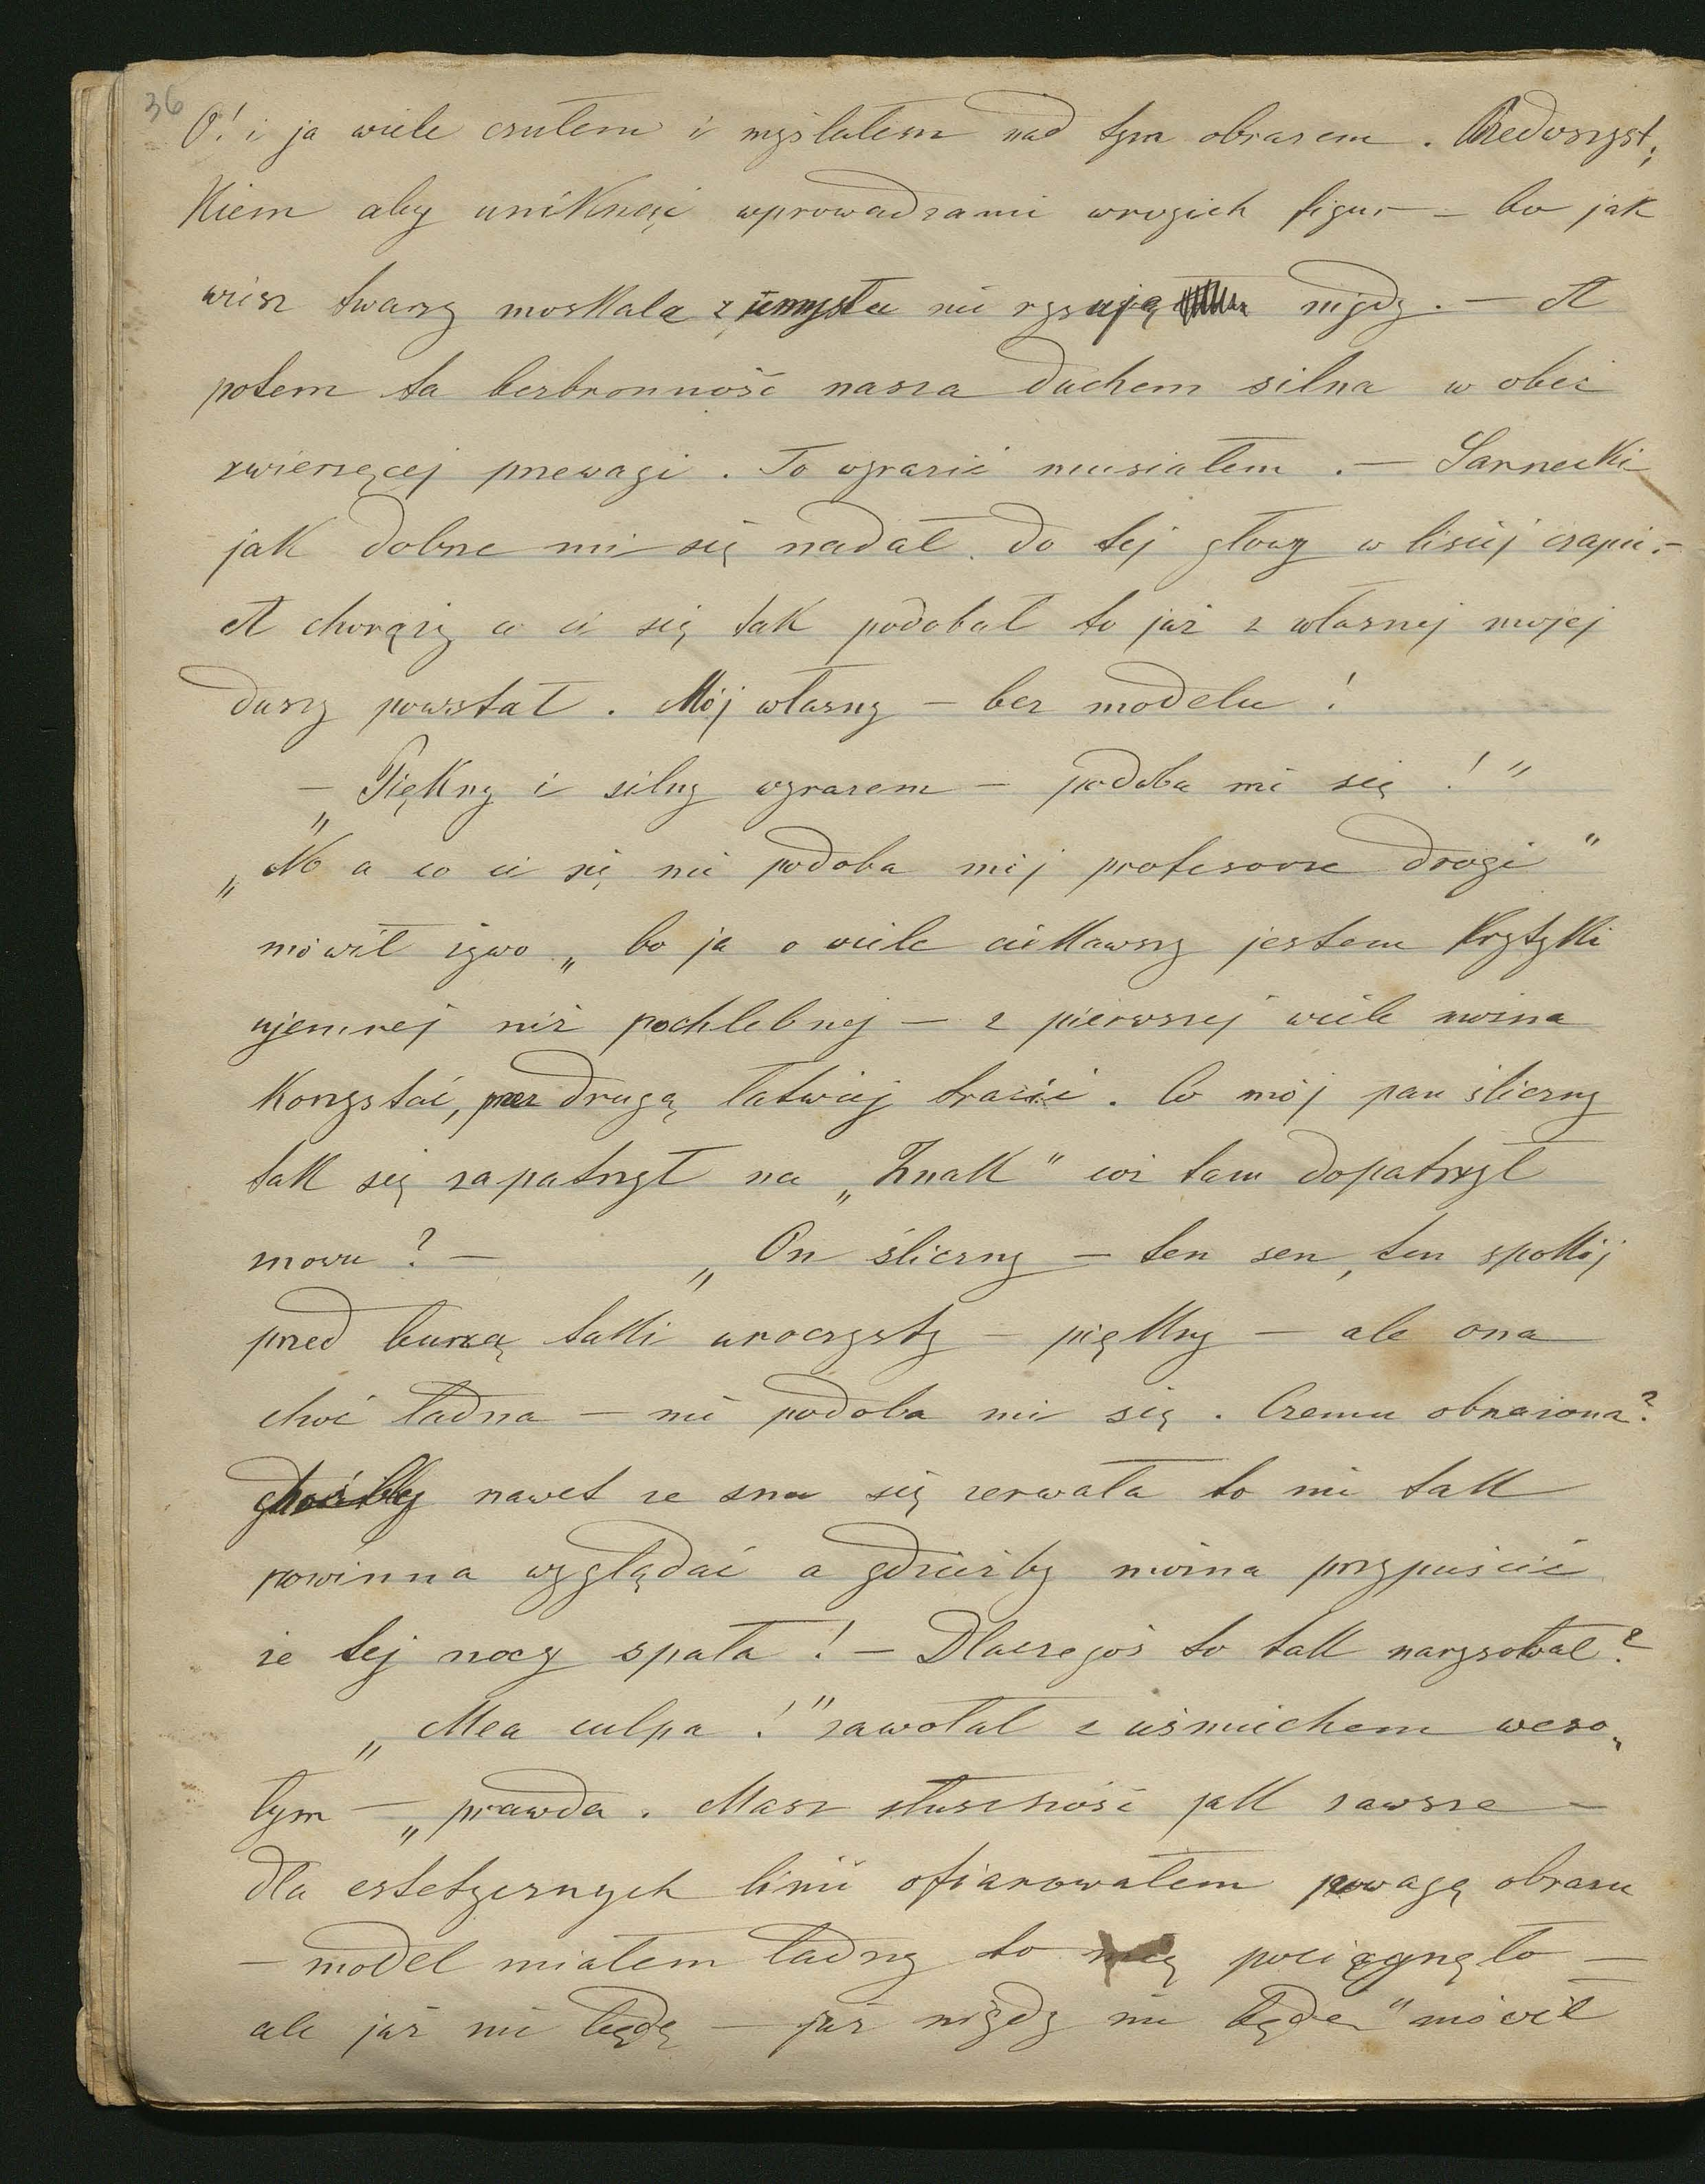 36
O! i ja wiele czułem i myślałem nad tym obrazem. Przedwszyst,
kiem aby uniknąć wprowadzania wrogich figur — bo jak
wiesz twarzy moskala z umysłu nie rysuję nigdy. — A
potem ta bezbronność nasza duchem silna w obec
zwierzęcej przewagi. To wyrazić musiałem. — Sarnecki
jak dobrze mi się nadał do tej głowy w lisiej czapie. —
A chorąży co ci się tak podobał to już z własnej mojej
duszy powstał. Mój własny — bez modelu!
— „Piękny i silny wyrazem — podoba mi się!"
„No a co ci się nie podoba mój profesorze drogi"
mówił żywo „bo ja o wiele ciekawszy jestem krytyki
ujemnej niż pochlebnej — z pierwszej wiele można
korzystać, przez drugą łatwiej tracić. Co mój pan śliczny
tak się zapatrzył na „Znak" cóż tam dopatrzył
mowu? — „On śliczny — ten sen, ten spokój
przed burzą taki uroczysty — piękny — ale ona
choć ładna — nie podoba mi się. Czemu obnażona?
choćby nawet ze snu się zerwała to nie tak
powinna wyglądać a gdzieżby można przypuścić
że tej nocy spała! — Dlaczegoś to tak narysował?
„Mea culpa!" zawołał z uśmiechem weso„
łym — „prawda. Masz słuszność jak zawsze —
dla estetycznych linii ofiarowałem powagę obrazu
— model miałem ładny to mię pociągnęło —
ale już nie będę — już nigdy nie będę" mówił